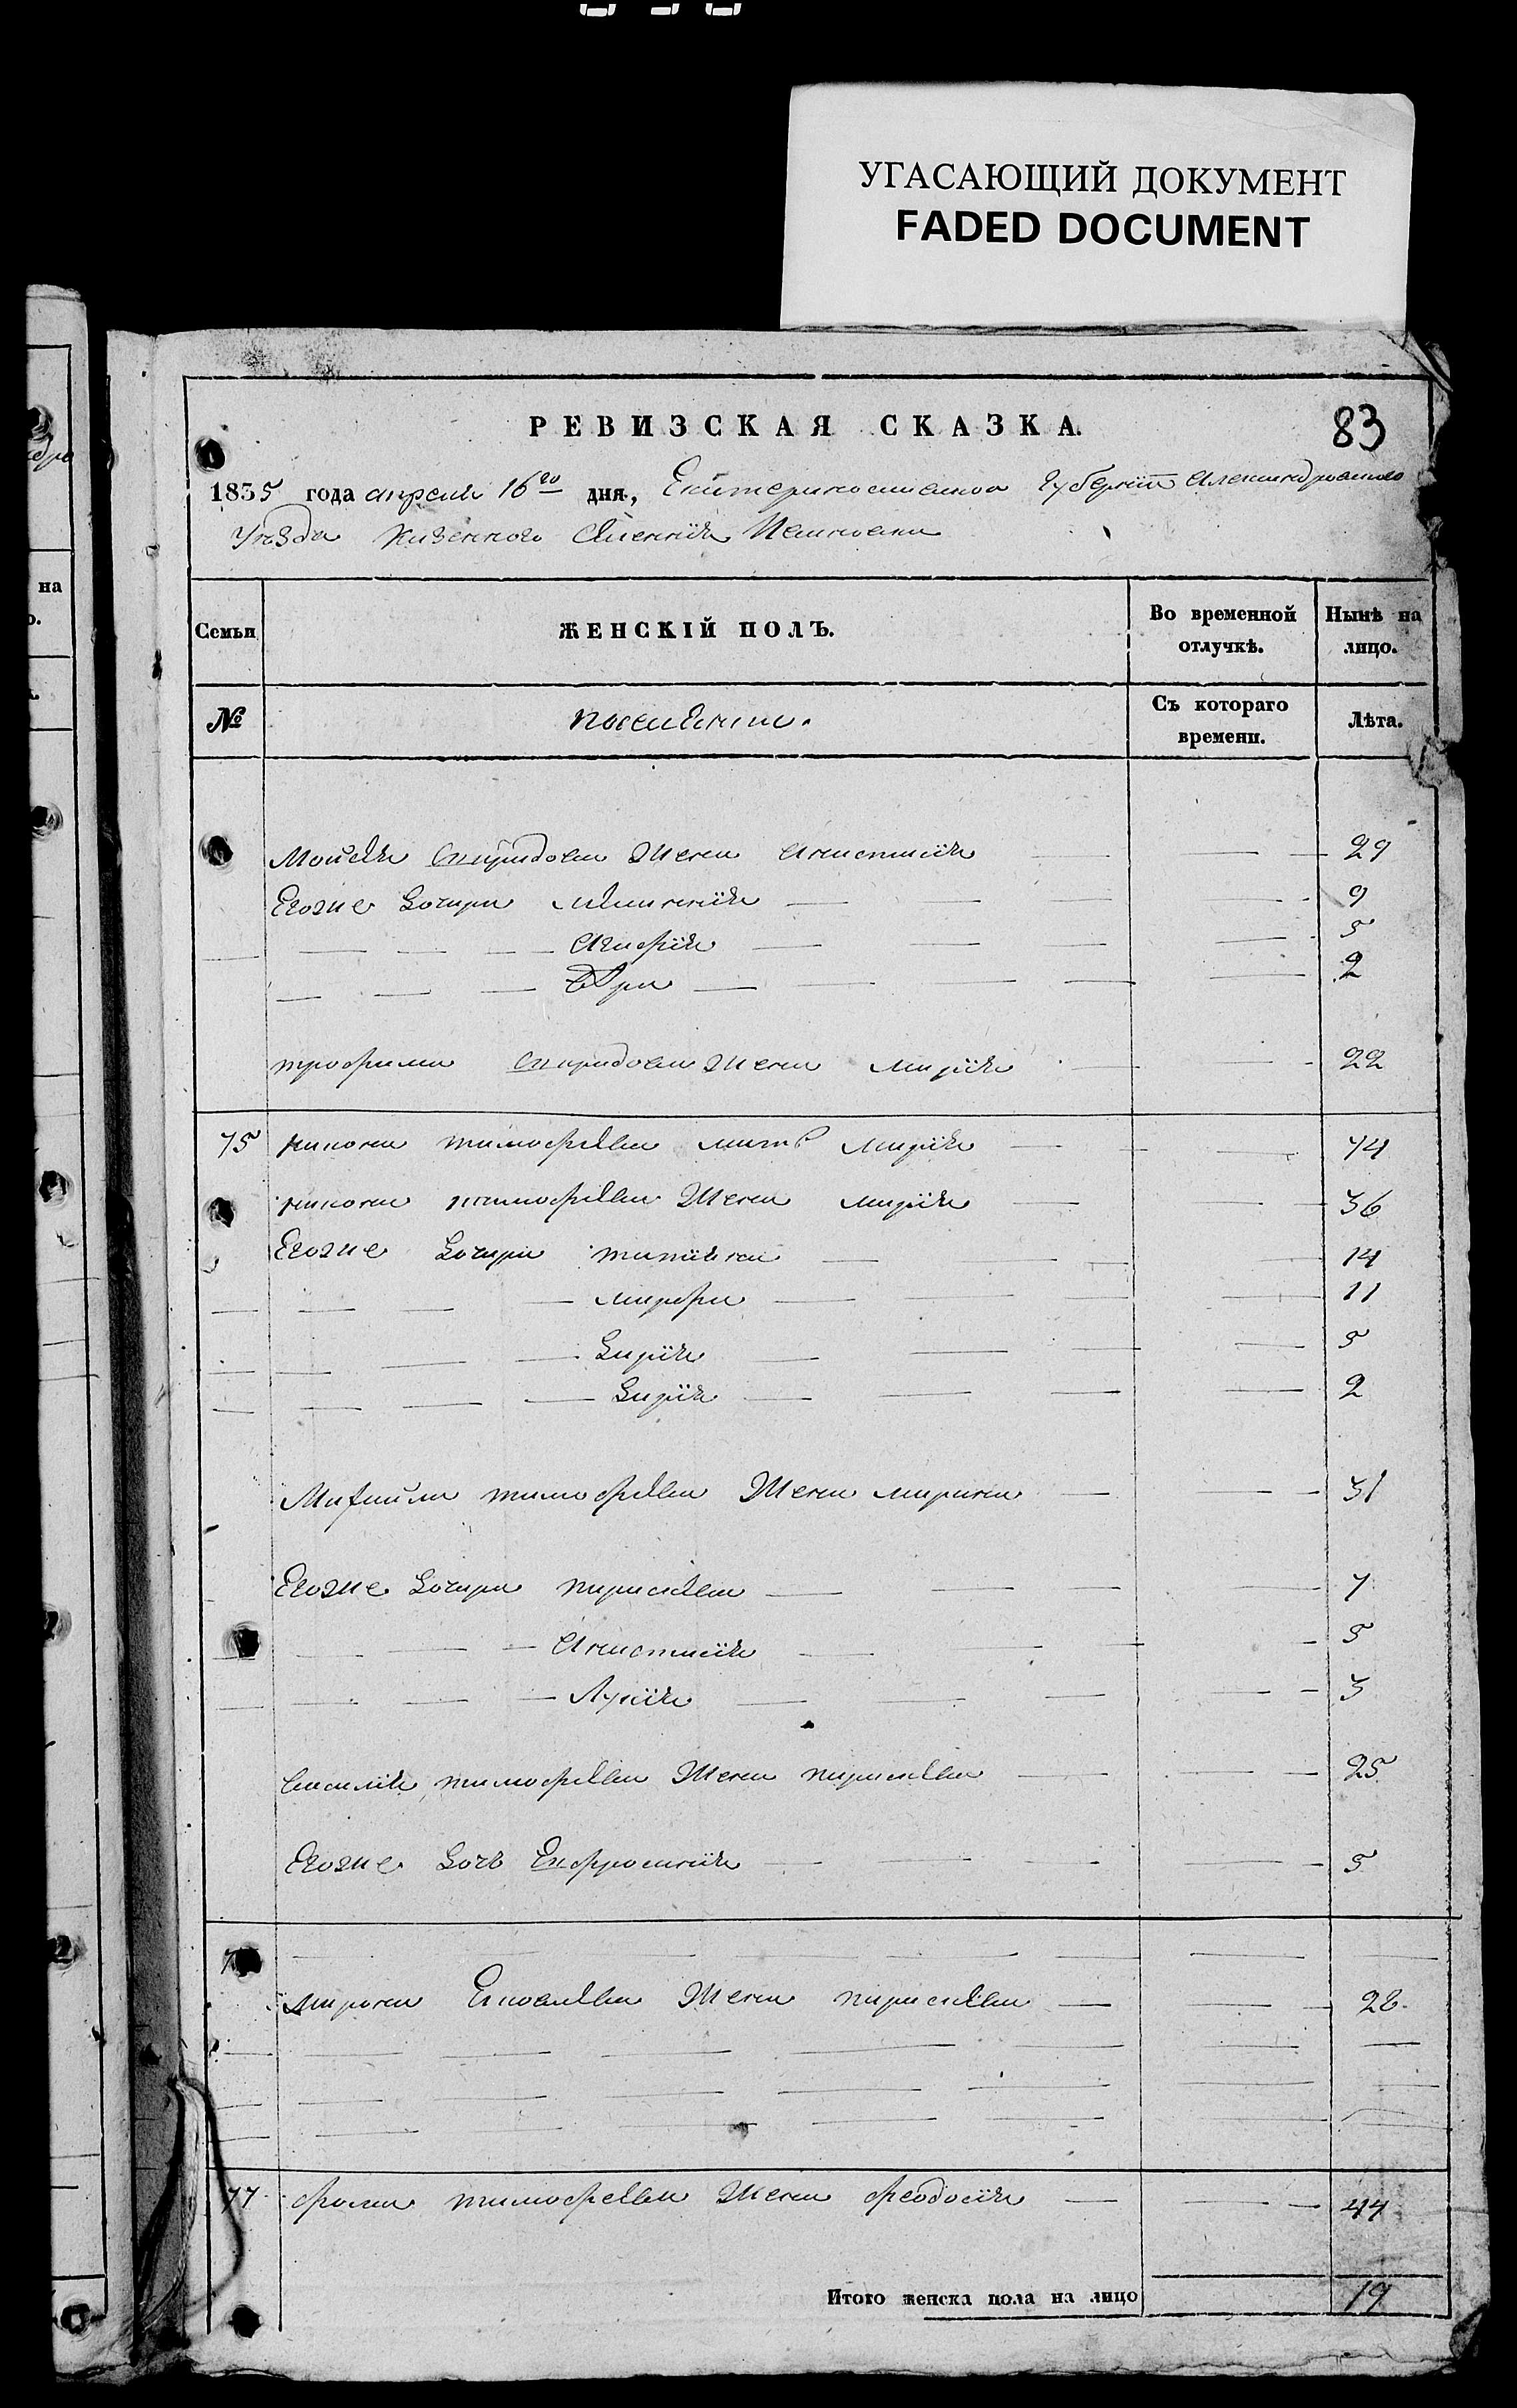 УГАСАЮЩИЙ ДОКУМЕНТ
FADED DOCUMENT
РЕВИЗСКАЯ СКАЗКА.
83
1835 года апреля 16го дня, Екатеринославской Губернии Александровского
Уѣзда Казенного Селения
Семьи
ЖЕНСКІЙ ПОЛЪ.
Во временной отлучкѣ.
Нынѣ на лицо.
№
поселяни.
Съ котораго времени.
Лѣта.
на
о.
Мойсея Спиридова Жена Анастасия 29
Егоже Дочери Меланния 9
Агафия 5
2
трофима Спиридова Жена Мария 22
75 никона тимофѣева мать Мария 74
никона тимофѣева Жена Мария 36
Егоже Дочери татияна 14
марфа 11
Дария 5
Дария 2
Михайла тимофѣева Жена марина 31
Егоже Дочери параскѣва 7
Анастасия 5
Лукия 3
Василия тимофѣева Жена параскѣва 25
Егоже Дочь Ефросиния 5
мирона Жена параскѣва 28
77 фома тимофеева Жена феодосия 44
Итого женска пола на лицо 19